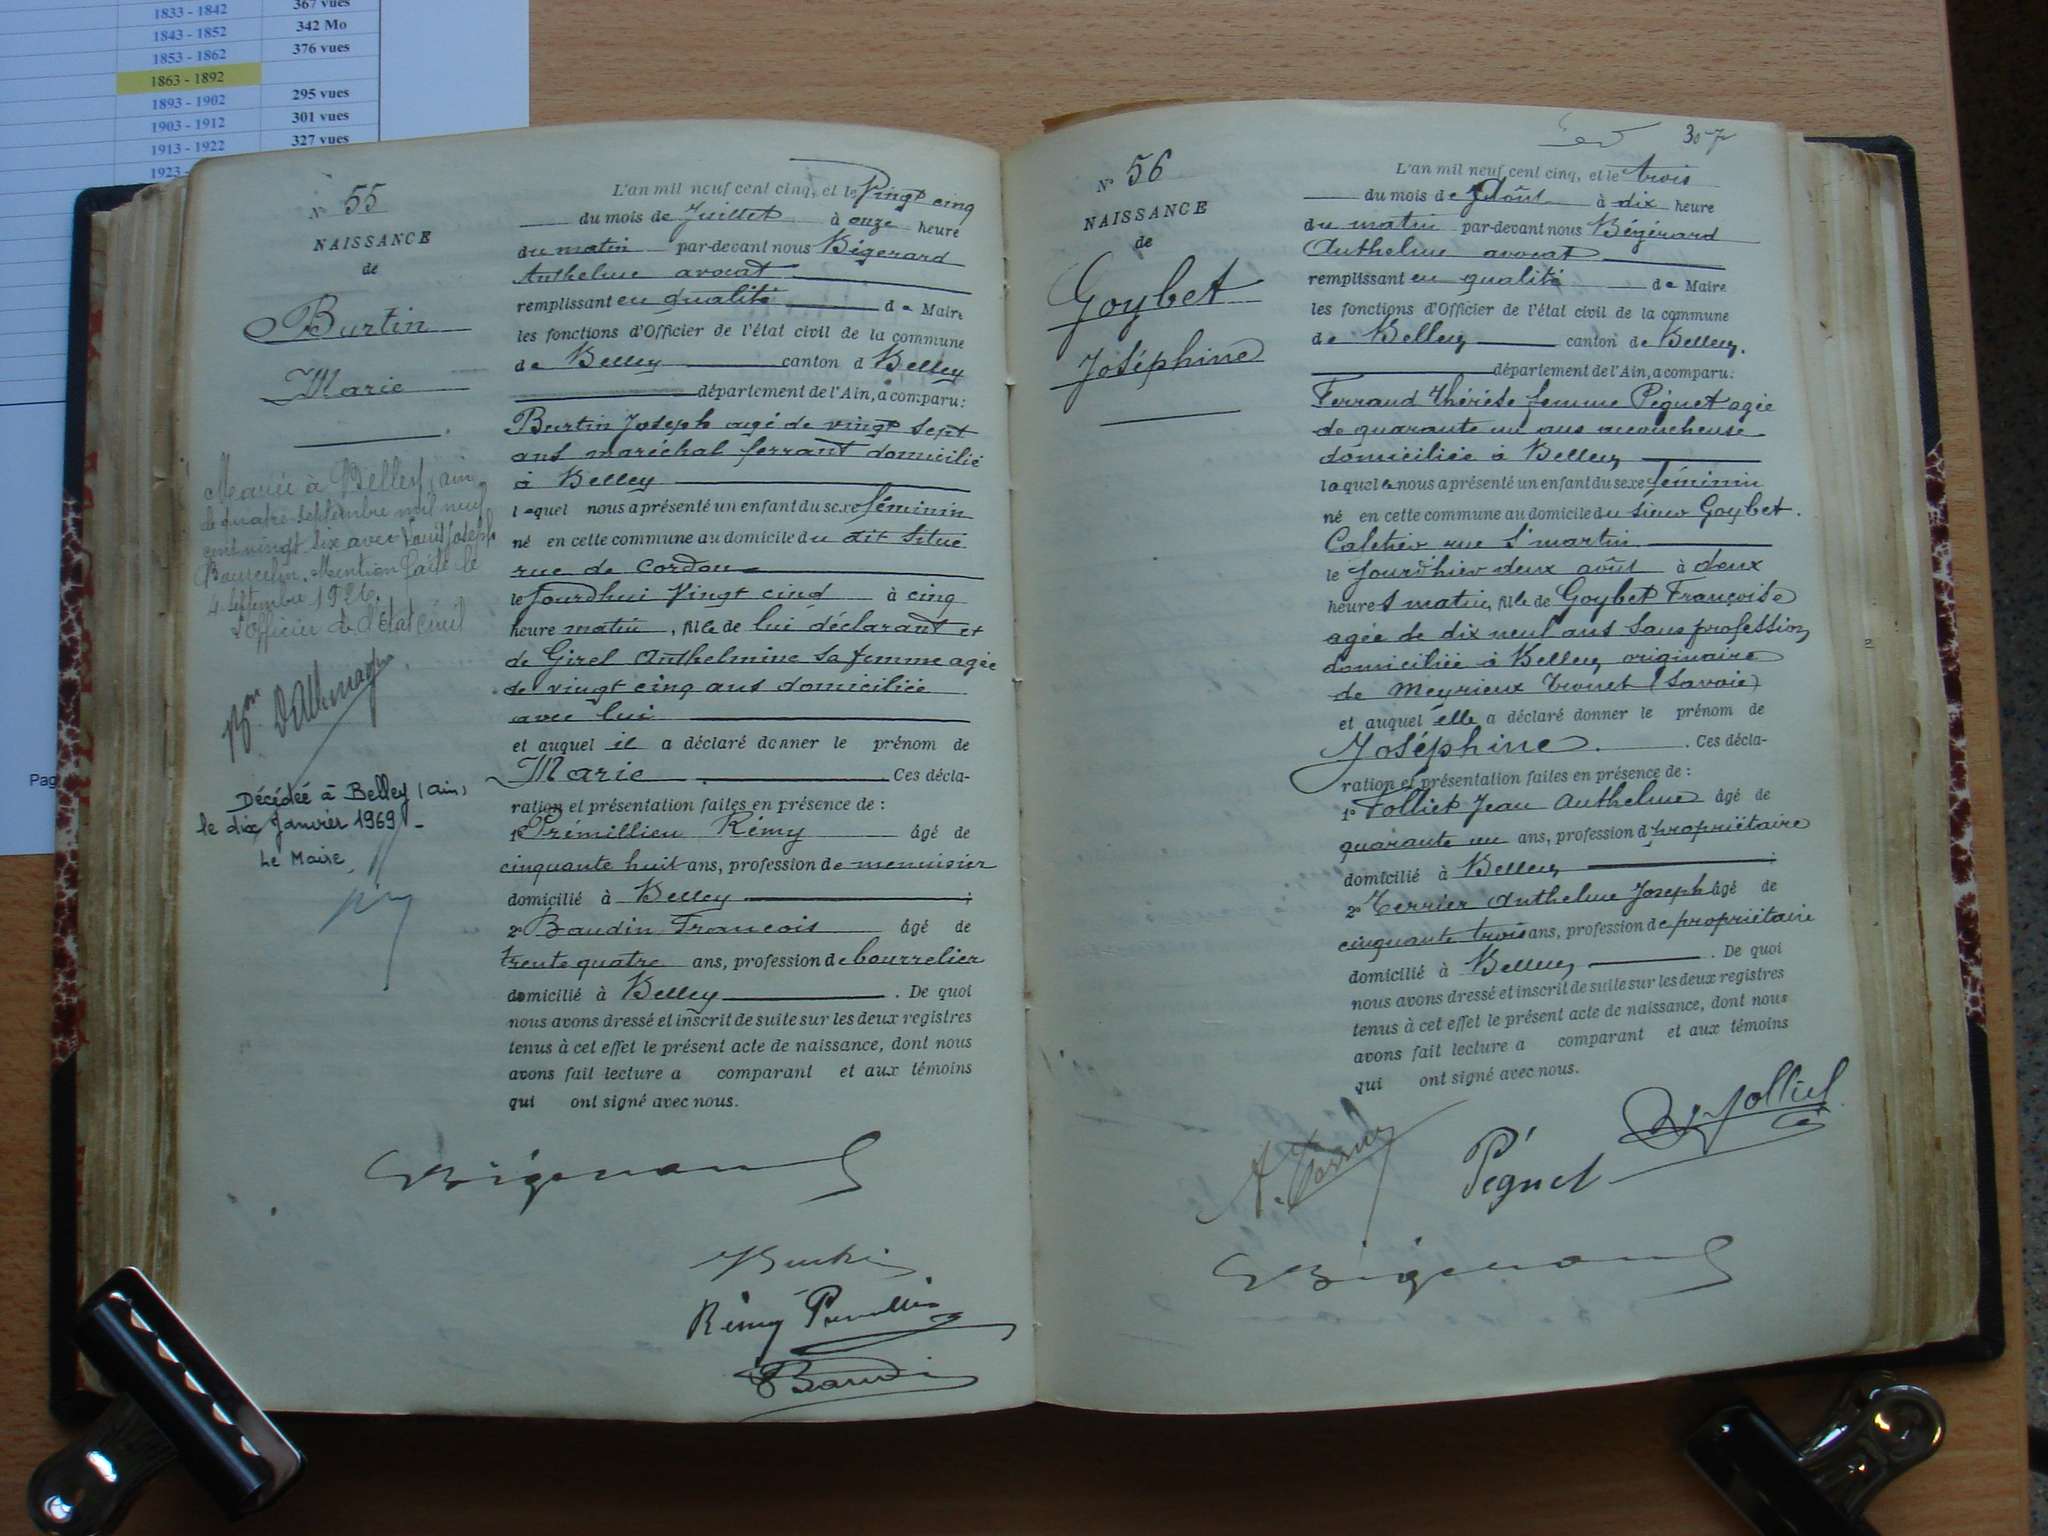 1833 - 1842 367 vues
1843 - 1852 342 Mo
1853 - 1862 376 vues
1863 - 1892
1893 - 1902 295 vues
1903 - 1912 301 vues
1913 - 1922 327 vues
1923 -
Pag
N° 55
NAISSANCE
de
Burtin
Marie
Mariée à Belley, ain
le quatre septembre mil neuf
cent vingt six avec Louis Joseph
Mention faite le
4 septembre 1926.
L'officier de l'État Civil
Décédée à Belley (Ain)
le dix Janvier 1969 -
Le Maire
L'an mil neuf cent cinq, et le Vingt cinq
du mois de Juillet à onze heure
du matin par-devant nous Bégerard
Anthelme avocat
remplissant en qualité de Maire
les fonctions d'Officier de l'état civil de la commune
de Belley canton d Belley
département de l'Ain, a comparu :
Burtin Joseph agé de vingt sept
ans maréchal ferrant domicilié
à Belley
lequel nous a présenté un enfant du sexe féminin
né en cette commune au domicile du dit Situé
rue de Cordon
le Jourdhui Vingt cinq à cinq
heure matin, fille de lui déclarant et
de Girel Anthelmine Sa femme agée
de vingt cinq ans domiciliée
avec lui
et auquel il a déclaré donner le prénom de
Marie Ces décla-
ration et présentation faites en présence de :
1° Prémillieu Rémy âgé de
cinquante huit ans, profession de menuisier
domicilié à Belley ;
2° Baudin François âgé de
trente quatre ans, profession de bourrelier
domicilié à Belley . De quoi
nous avons dressé et inscrit de suite sur les deux registres
tenus à cet effet le présent acte de naissance, dont nous
avons fait lecture a comparant et aux témoins
qui ont signé avec nous.
Bégerard
Burtin
Rémy Prémillieu
Baudin
307
N° 56
NAISSANCE
de
Goybet
Joséphine
L'an mil neuf cent cinq, et le trois
du mois de Août à dix heure
du matin par-devant nous Bégérard
Anthelme avocat
remplissant en qualité de Maire
les fonctions d'Officier de l'état civil de la commune
de Belley canton de Belley.
département de l'Ain, a comparu :
Ferraud Thérèse femme Péguet agée
de quarante un ans accoucheuse
domiciliée à Belley
laquelle nous a présenté un enfant du sexe féminin
né en cette commune au domicile du sieur Goybet.
Cafetier rue St martin
le Jourd'hier deux août à deux
heures matin, fille de Goybet Françoise
agée de dix neuf ans Sans profession
domiciliée à Belley originaire
de Meyrieux Trouet (Savoie)
et auquel elle a déclaré donner le prénom de
Joséphine . Ces décla-
ration et présentation faites en présence de :
1° Folliet Jean Anthelme âgé de
quarante un ans, profession d propriétaire
domicilié à Belley ;
2° Terrier Anthelme Joseph âgé de
cinquante trois ans, profession de propriétaire
domicilié à Belley . De quoi
nous avons dressé et inscrit de suite sur les deux registres
tenus à cet effet le présent acte de naissance, dont nous
avons fait lecture a comparant et aux témoins
qui ont signé avec nous.
Folliet
Péguet
Bégerard